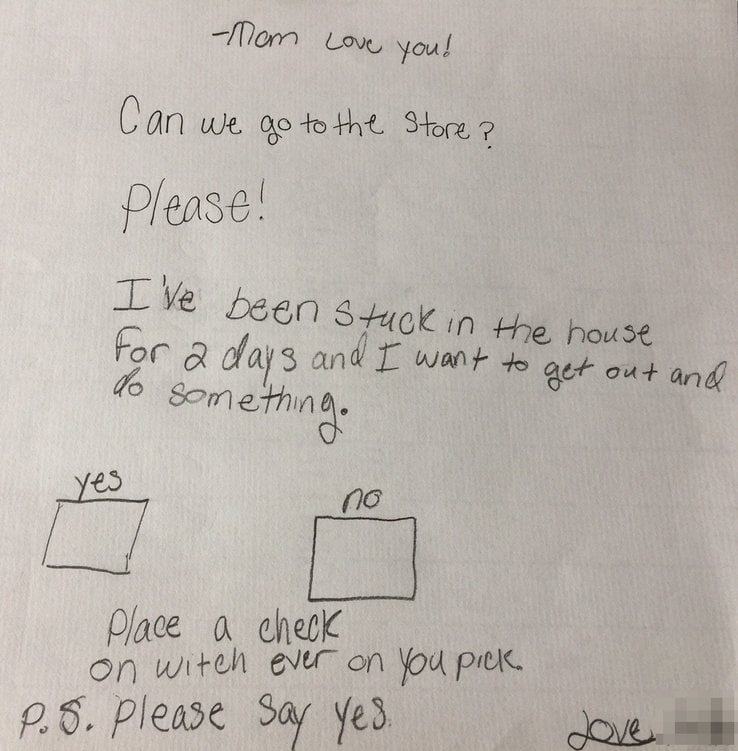 -Mom Love you!
Can we go to the store?
Please!
I've been stuck in the house
for 2 days and I want to get out and
do something.
yes
no
Place a check
on witch ever on you pick.
P.S. Please say yes.
Love